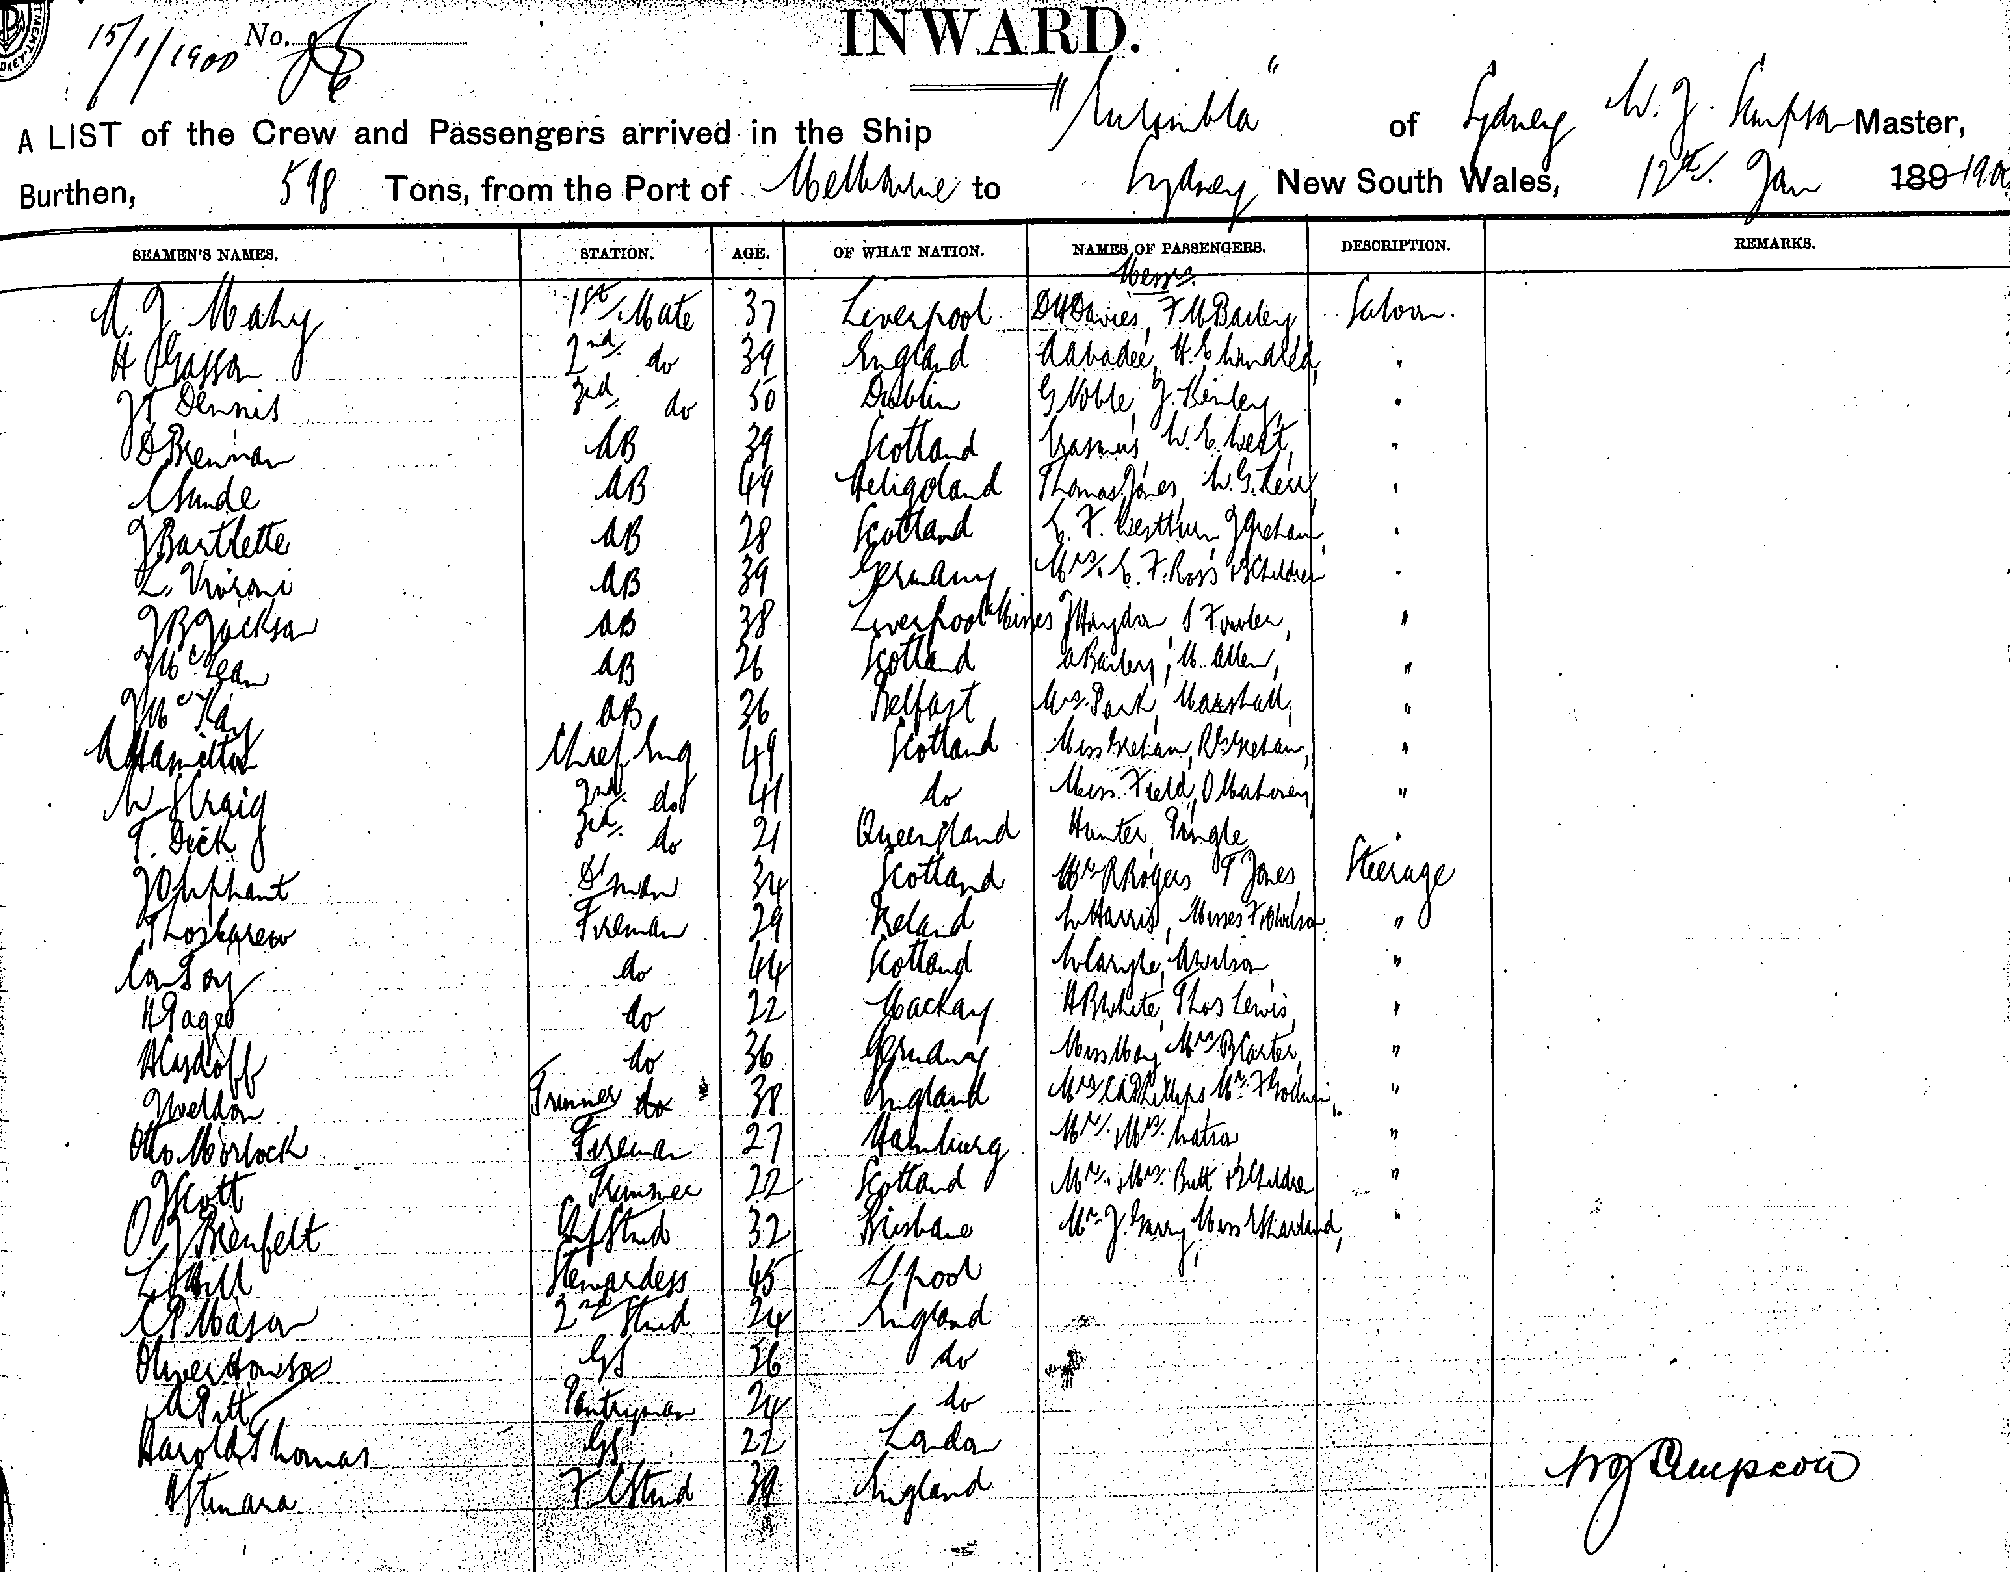 15/1/1900 No. 86
INWARD.
A LIST of the Crew and Passengers arrived in the Ship "Eurimbla" of Sydney W. J. Simpson Master,
Burthen, 598 Tons, from the Port of Melbourne to Sydney New South Wales, 12th Jan 189 1900
SEAMEN'S NAMES. STATION. AGE. OF WHAT NATION. NAMES OF PASSENGERS. DESCRIPTION. REMARKS.
Messrs.
Mahy 1st Mate 37 Liverpool Davies, F M Bailey Saloon.
H 2nd do 39 England "
Dennis 3rd do 50 Dublin G Noble, J. "
D Brennan AB 39 Scotland Erasmus, W. E. West, "
AB 49 Heligoland Thomas Jones, W. G. Kerr "
J Bartlette AB 28 Scotland E. F. J Graham, "
AB 39 Germany Mrs. E. F. Ross & 3 Children "
J B Jackson AB 38 Liverpool Misses Haydon, Fowler, "
J McLean AB 26 Scotland A Bailey, M. Allen, "
J McKay AB 36 Belfast Mrs. Park, Marshall, "
A Hamilton Chief Eng 49 Scotland Miss Graham, "
W 2nd do 41 do Miss. Field, O Mahoney "
T. Dick 3rd do 21 Queensland Hunter, Pringle "
J Oliphant D'man 34 Scotland Mr R Rogers T Jones Steerage
Thos Carew Fireman 29 Ireland W Harris, Misses "
do 44 Scotland W Cargle, A Wilson "
H Page do 22 Mackay H B White, Thos Lewis, "
do 36 Germany Miss May, Mrs B Carter, "
J Weldon Trimmer do 38 England Mrs C A Phillips, Mr. F "
Otto Morlock Fireman 27 Hamburg Mr. & Mrs. Watson "
J Scott Trimmer 22 Scotland Mr. & Mrs. Butt & 3 Children "
Chf Stwd 32 Brisbane Mr. J. Garry, Miss "
L Hill Stewardess 45 L'pool
C P Mason 2nd Stwd 24 England
Oliver GS 26 do
A Pitt Pantryman 24 do
Harold Thomas GS 22 London
F C Stwd 39 England
W J Simpson